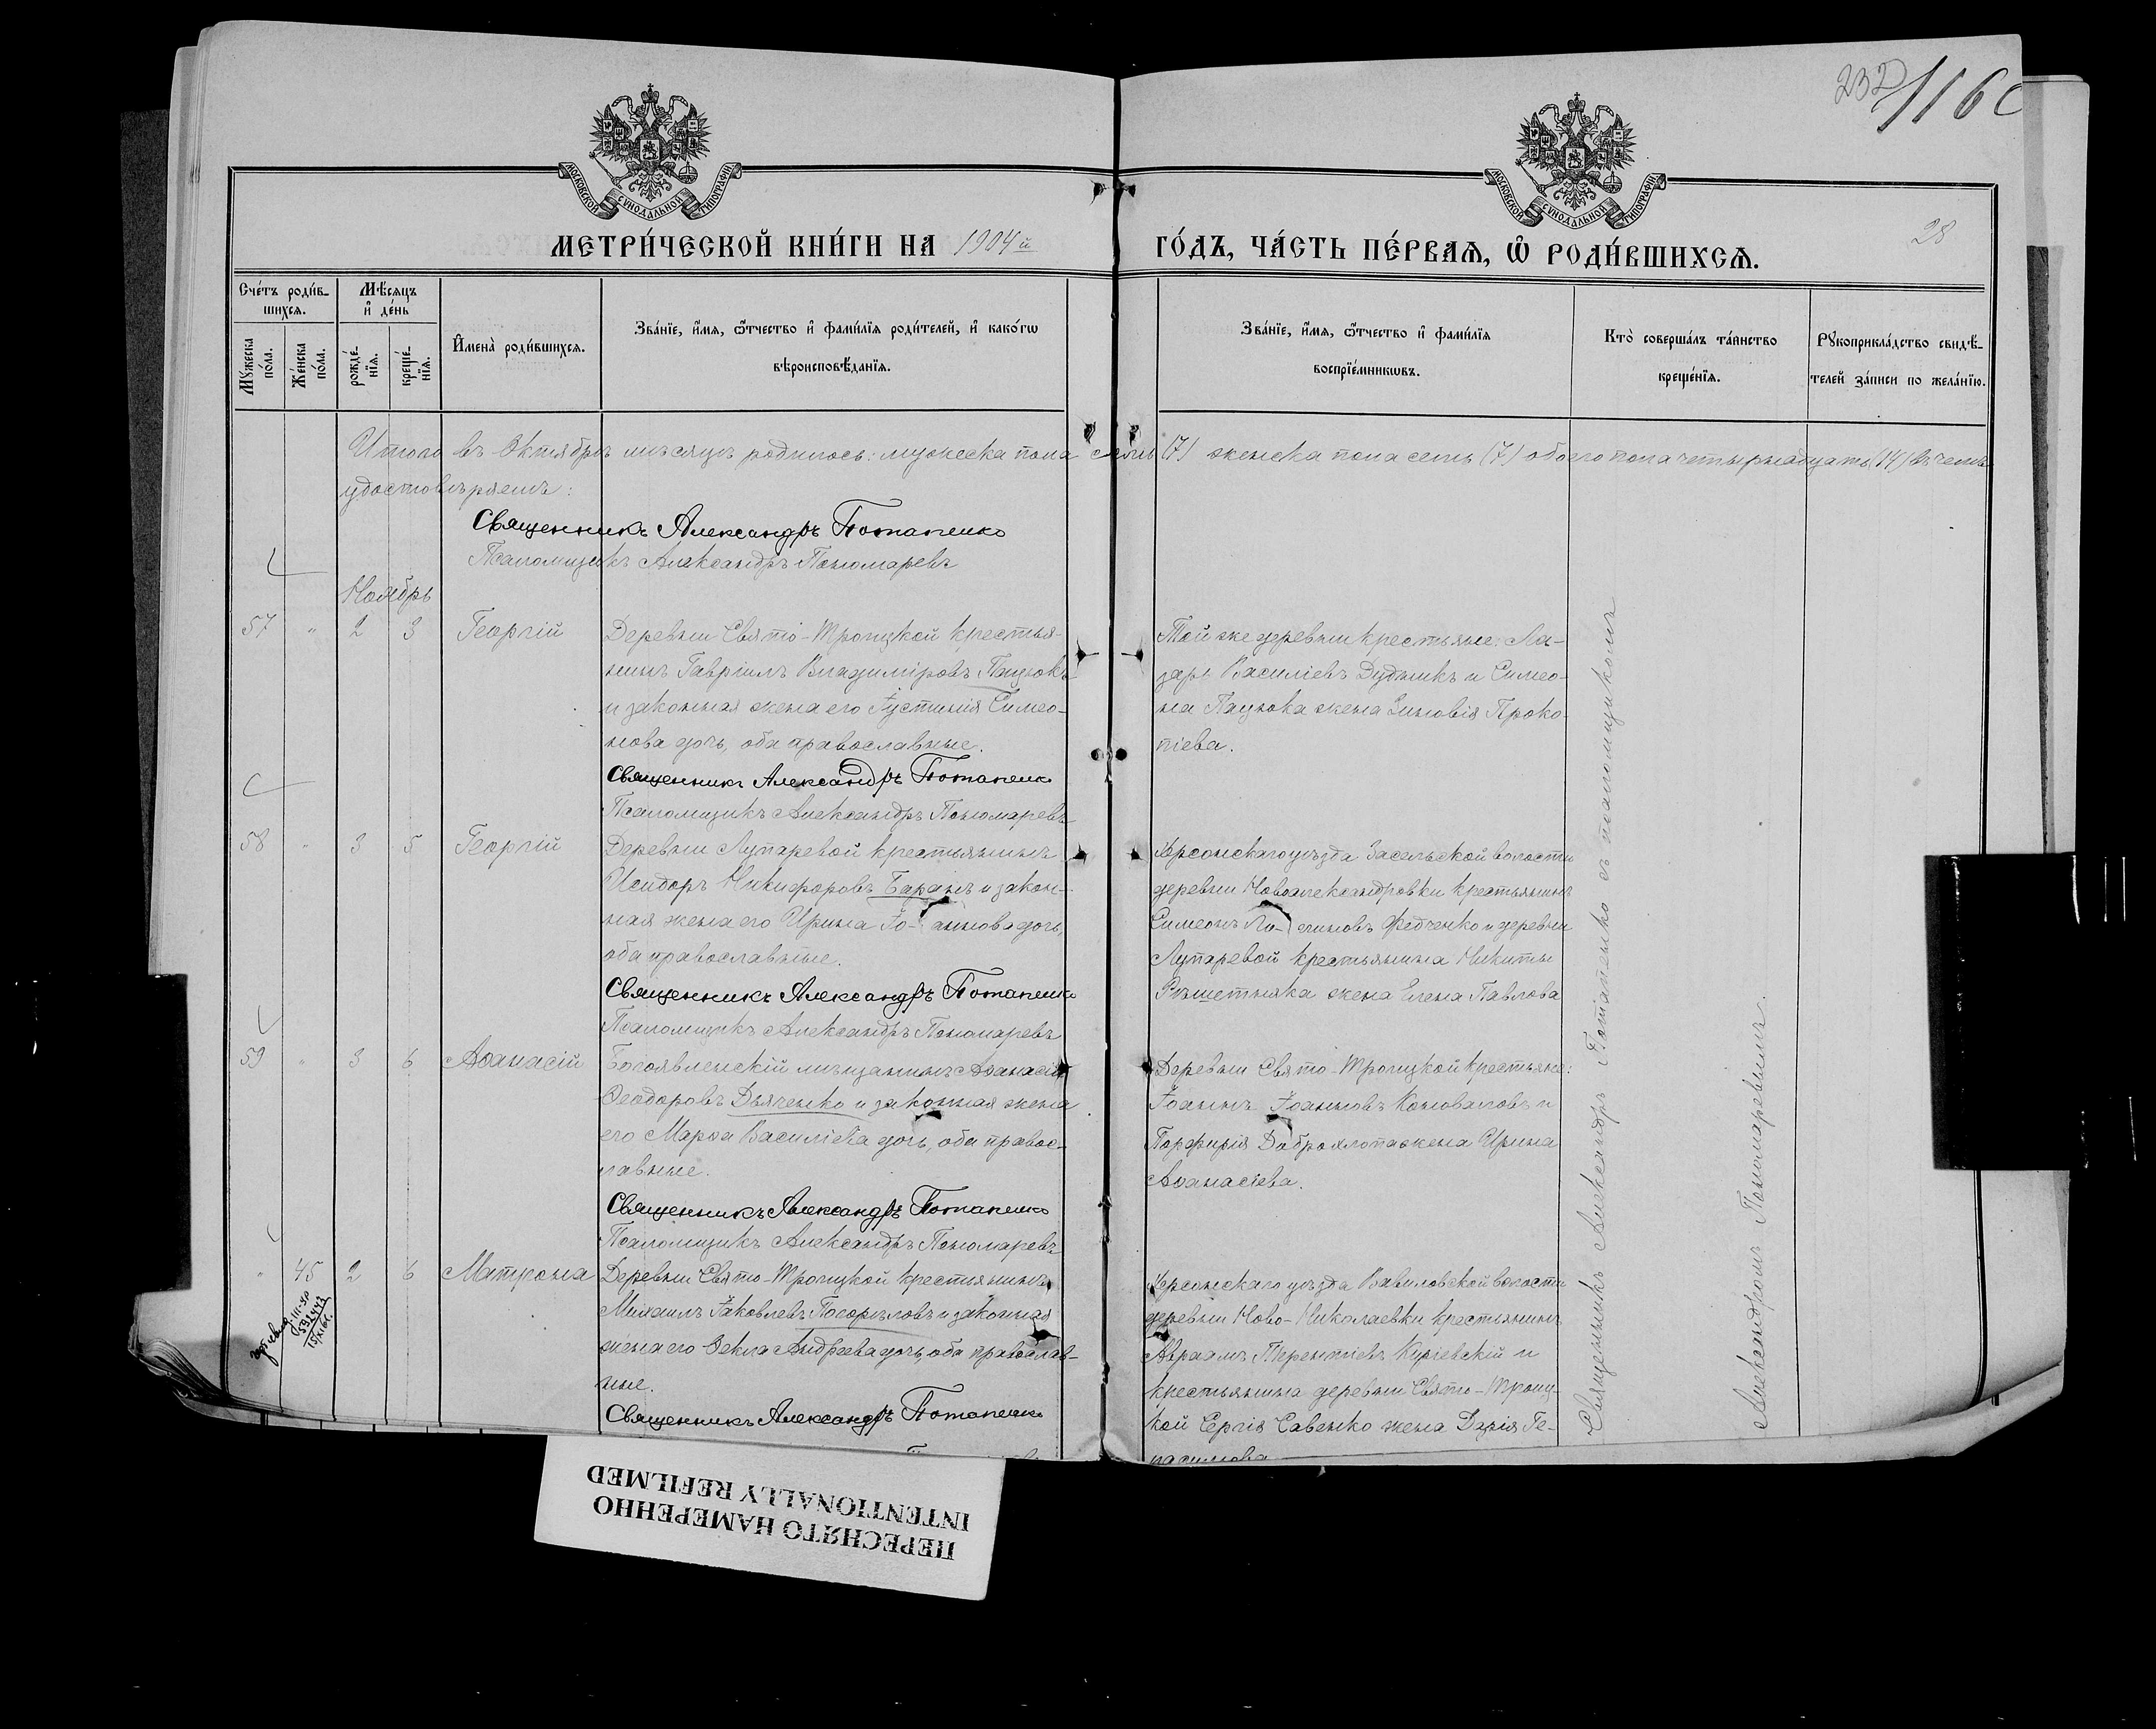 232
116 с
МОСКОВСКОЙ СѴНОДАЛЬНОЙ ТИПОГРАФІИ
МОСКОВСКОЙ СѴНОДАЛЬНОЙ ТИПОГРАФІИ
28
МЕТРИ́ЧЕСКОЙ КНИ́ГИ НА 1904й
ГО́ДЪ, ЧА́СТЬ ПЕ́РВАѦ, Ѽ РОДИ́ВШИХСѦ.
Сче́тъ роди́в-
шихся.
Му́жеска по́ла.
Же́нска по́ла.
Мѣ́сяцъ
и де́нь
рожде́нїя.
креще́нїя.
Имена̀ роди́вшихся.
Зва́нїе, и́мя, ѻ́тчество и фами́лїя роди́телей, и како́гѡ
вѣроисповѣ́данїя.
Зва́нїе, и́мя, ѻ́тчество и фами́лїя
воспрїе́мникѡвъ.
Кто̀ соверша́лъ та́инство
креще́нїя.
Рꙋкоприкла́дство свидѣ́-
телей за́писи по жела́нїю.
Итого въ Октябрѣ мѣсяцѣ родилось: мужеска пола семь (7) женска пола семь (7) обоего пола четырнадцать (14) въ чемъ
удостовѣряемъ:
Священникъ Александръ Потапенко
Псаломщикъ Александръ Пономаревъ
Ноябрь
57 " 2 3 Георгій
Деревни Свято-Троицкой крестья-
нинъ Гавріилъ Владиміровъ Пацюкъ
и законная жена его Іустинія Симео-
нова дочь, оба православные.
Священникъ Александръ Потапенко
Псаломщикъ Александръ Пономаревъ
Той же деревни крестьяне: Ла-
зарь Василіевъ Дудникъ и Симео-
на Пацюка жена Зиновія Проко-
піева.
58 " 3 5 Георгій
Деревни Лупаревой крестьянинъ
Исидоръ Никифоровъ Баранъ и закон-
ная жена его Ирина Іо-аннова дочь,
оба православные.
Священникъ Александръ Потапенко
Псаломщикъ Александръ Пономаревъ
Херсонскаго уѣзда Засельской волости
деревни Новоалександровки крестьянинъ
Симеонъ Ло-гиновъ Федченко и деревни
Лупаревой крестьянина Никиты
Рѣшетняка жена Елена Павлова
59 " 3 6 Аѳанасій
Богоявленскій мѣщанинъ Аѳанасій
Ѳеодоровъ Дьяченко и законная жена
его Марѳа Василіева дочь, оба правос-
лавные.
Священникъ Александръ Потапенко
Псаломщикъ Александръ Пономаревъ
Деревни Свято-Троицкой крестьяне:
Іоаннъ Іоанновъ Коноваловъ и
Порфирія Доброхлопа жена Ирина
Аѳанасіева.
" 45 2 6 Матрона
Деревни Свято-Троицкой крестьянинъ
Михаилъ Іаковлевъ Погорѣловъ и законная
жена его Ѳекла Андреева дочь, оба православ-
ные.
Священникъ Александръ Потапенко
Херсонскаго уѣзда Вавиловской волости
деревни Ново-Николаевки крестьянинъ
Авраамъ Терентіевъ Кіріевскій и
крестьянина деревни Свято-Троиц-
кой Сергія Савенко жена Дарія Ге-
расимова
Священникъ Александръ Потапенко съ псаломщикомъ
Александромъ Пономаревымъ.
ПЕРЕСНЯТО НАМЕРЕННО
INTENTIONALLY REFILMED